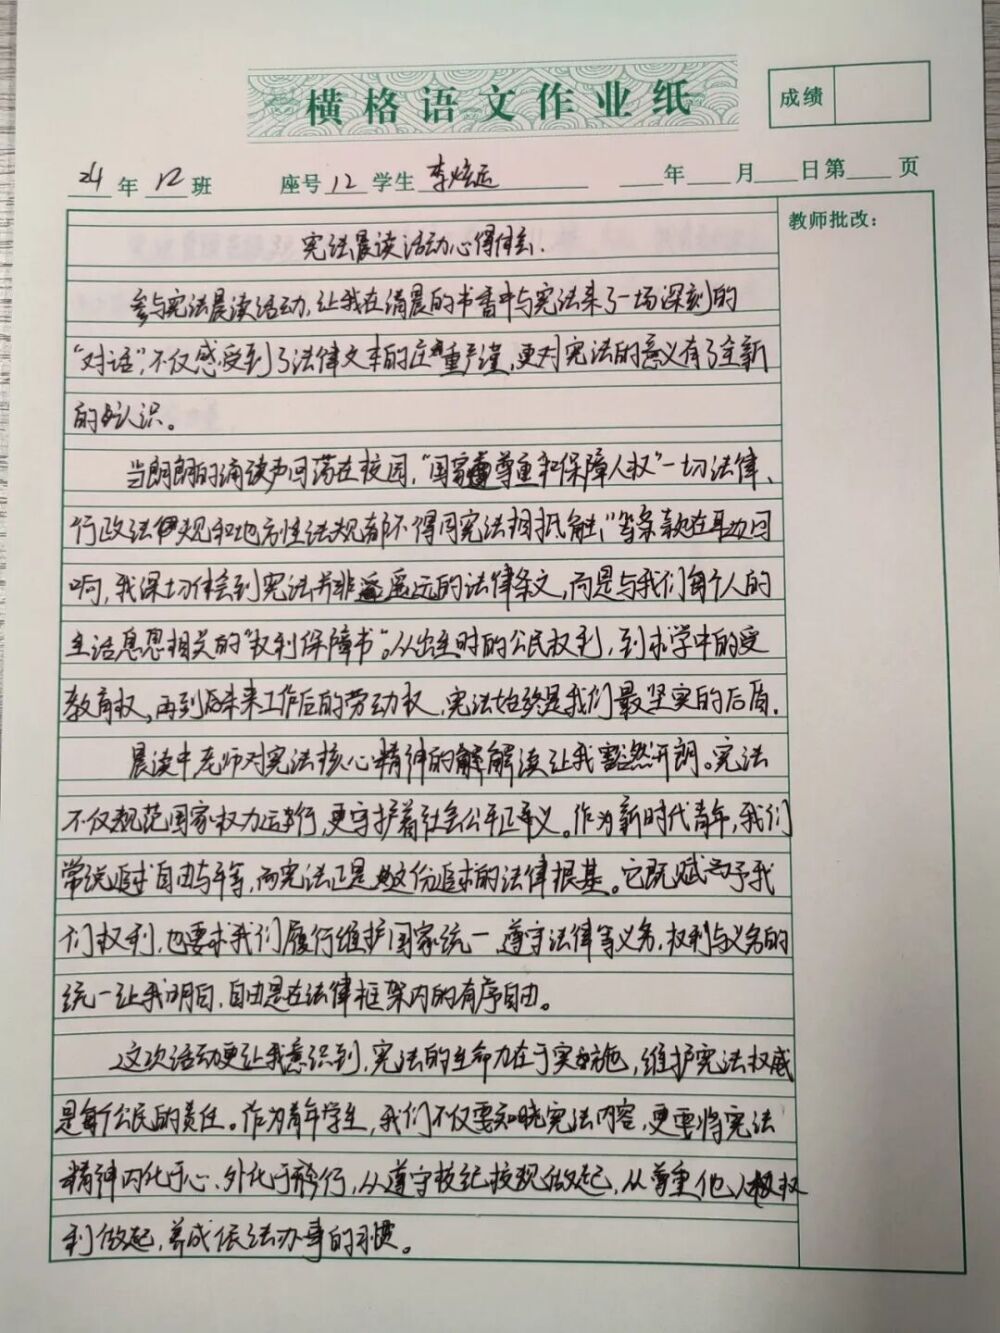 横格语文作业纸
成绩
24年12班 座号12学生李炫运 年 月 日第 页
教师批改:
宪法晨读活动心得体会.
参与宪法晨读活动,让我在清晨的书香中与宪法来了一场深刻的
“对话”,不仅感受到了法律文本的庄重严谨,更对宪法的意义有了全新
的认识。
当朗朗的诵读声回荡在校园,“国家尊重和保障人权”一切法律、
行政法规和地方性法规都不得同宪法相抵触”等条款在耳边回
响,我深切体会到宪法并非遥远的法律条文,而是与我们每个人的
生活息息相关的“权利保障书”。从出生时的公民权利,到求学中的受
教育权,再到未来工作后的劳动权,宪法始终是我们最坚实的后盾.
晨读中老师对宪法核心精神的解读让我豁然开朗。宪法
不仅规范国家权力运行,更守护着社会公平正义。作为新时代青年,我们
常说追求自由与平等,而宪法正是这份追求的法律根基。它既赋予我
们权利,也要求我们履行维护国家统一 遵守法律等义务,权利与义务的
统一让我明白,自由是在法律框架内的有序自由。
这次活动更让我意识到,宪法的生命力在于实施,维护宪法权威
是每个公民的责任。作为青年学生,我们不仅要知晓宪法内容,更要将宪法
精神内化于心、外化于行,从遵守校纪校规做起,从尊重他人权
利做起,养成依法办事的习惯。